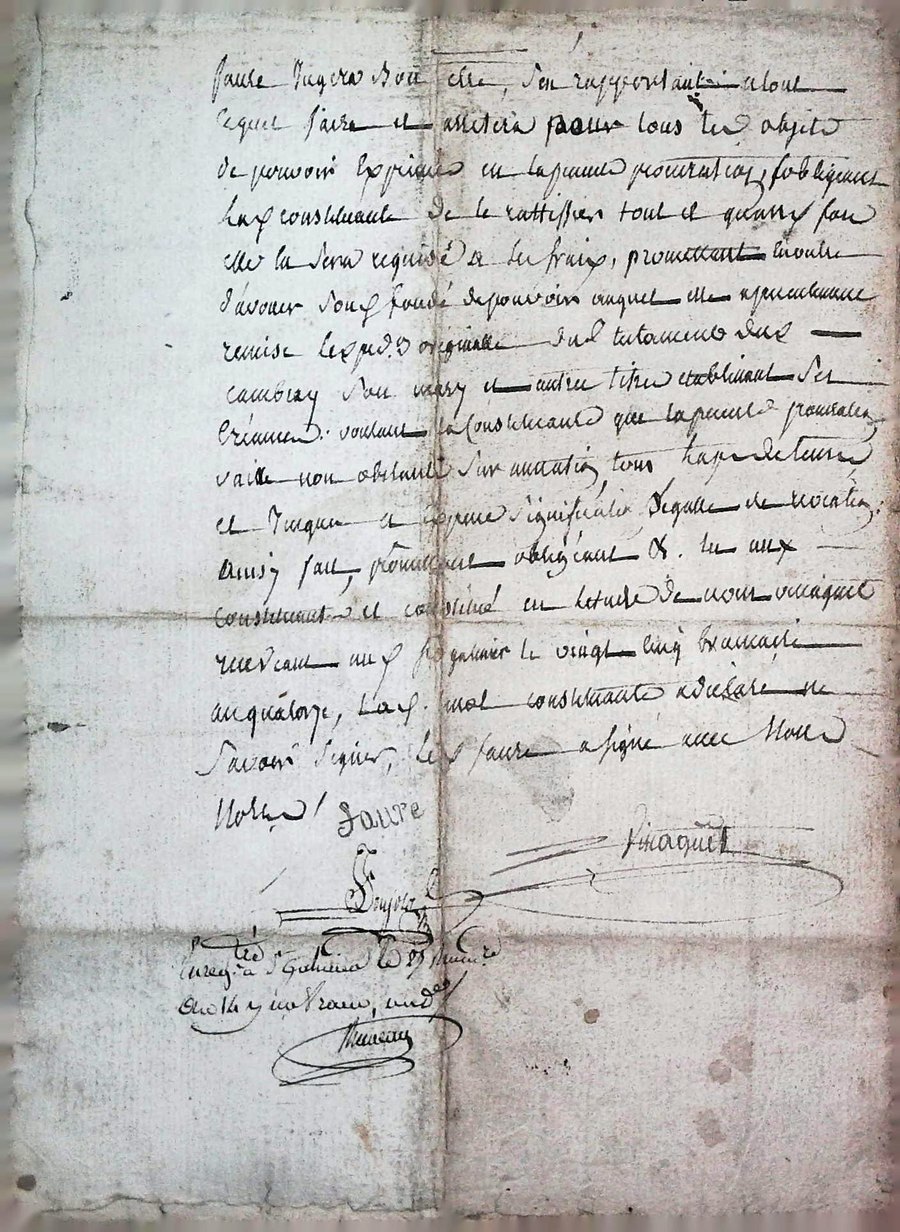 faure Jugera Bon etre, s'en rapportant atout
cequel faire et arretera pour tous les objets
de pouvoir Exprimés en la presente procuration, s'obligeant
lad constituante de le rattiffier tout et quantes fois
elle en sera requise a ses fraix, promettant Enoutre
d'avouer sond fondé depouvoir auquel elle a presentement
remise originalle dud testament dud
cambray son mary et autres titres etablissant ses
Créances. voulant la Constituante que la presente procuration
vaille non obstant Sur annation, tous laps de temps
et Jusques a Expresse signification Légalle de revocation.
Ainsy fait, promettant obligéant &. lu aux
constituant et constitué en letude de nous vinaquet
recevant aud St galmier le vingt Cinq brumaire
an quatorze, Lad. constituante a déclaré ne
Savoir Signer, Led faure a signé avec Nous
Notre
faure
Vinaquet
Enregtré a St Galmier le 27 brumaire
an 14 un franc,